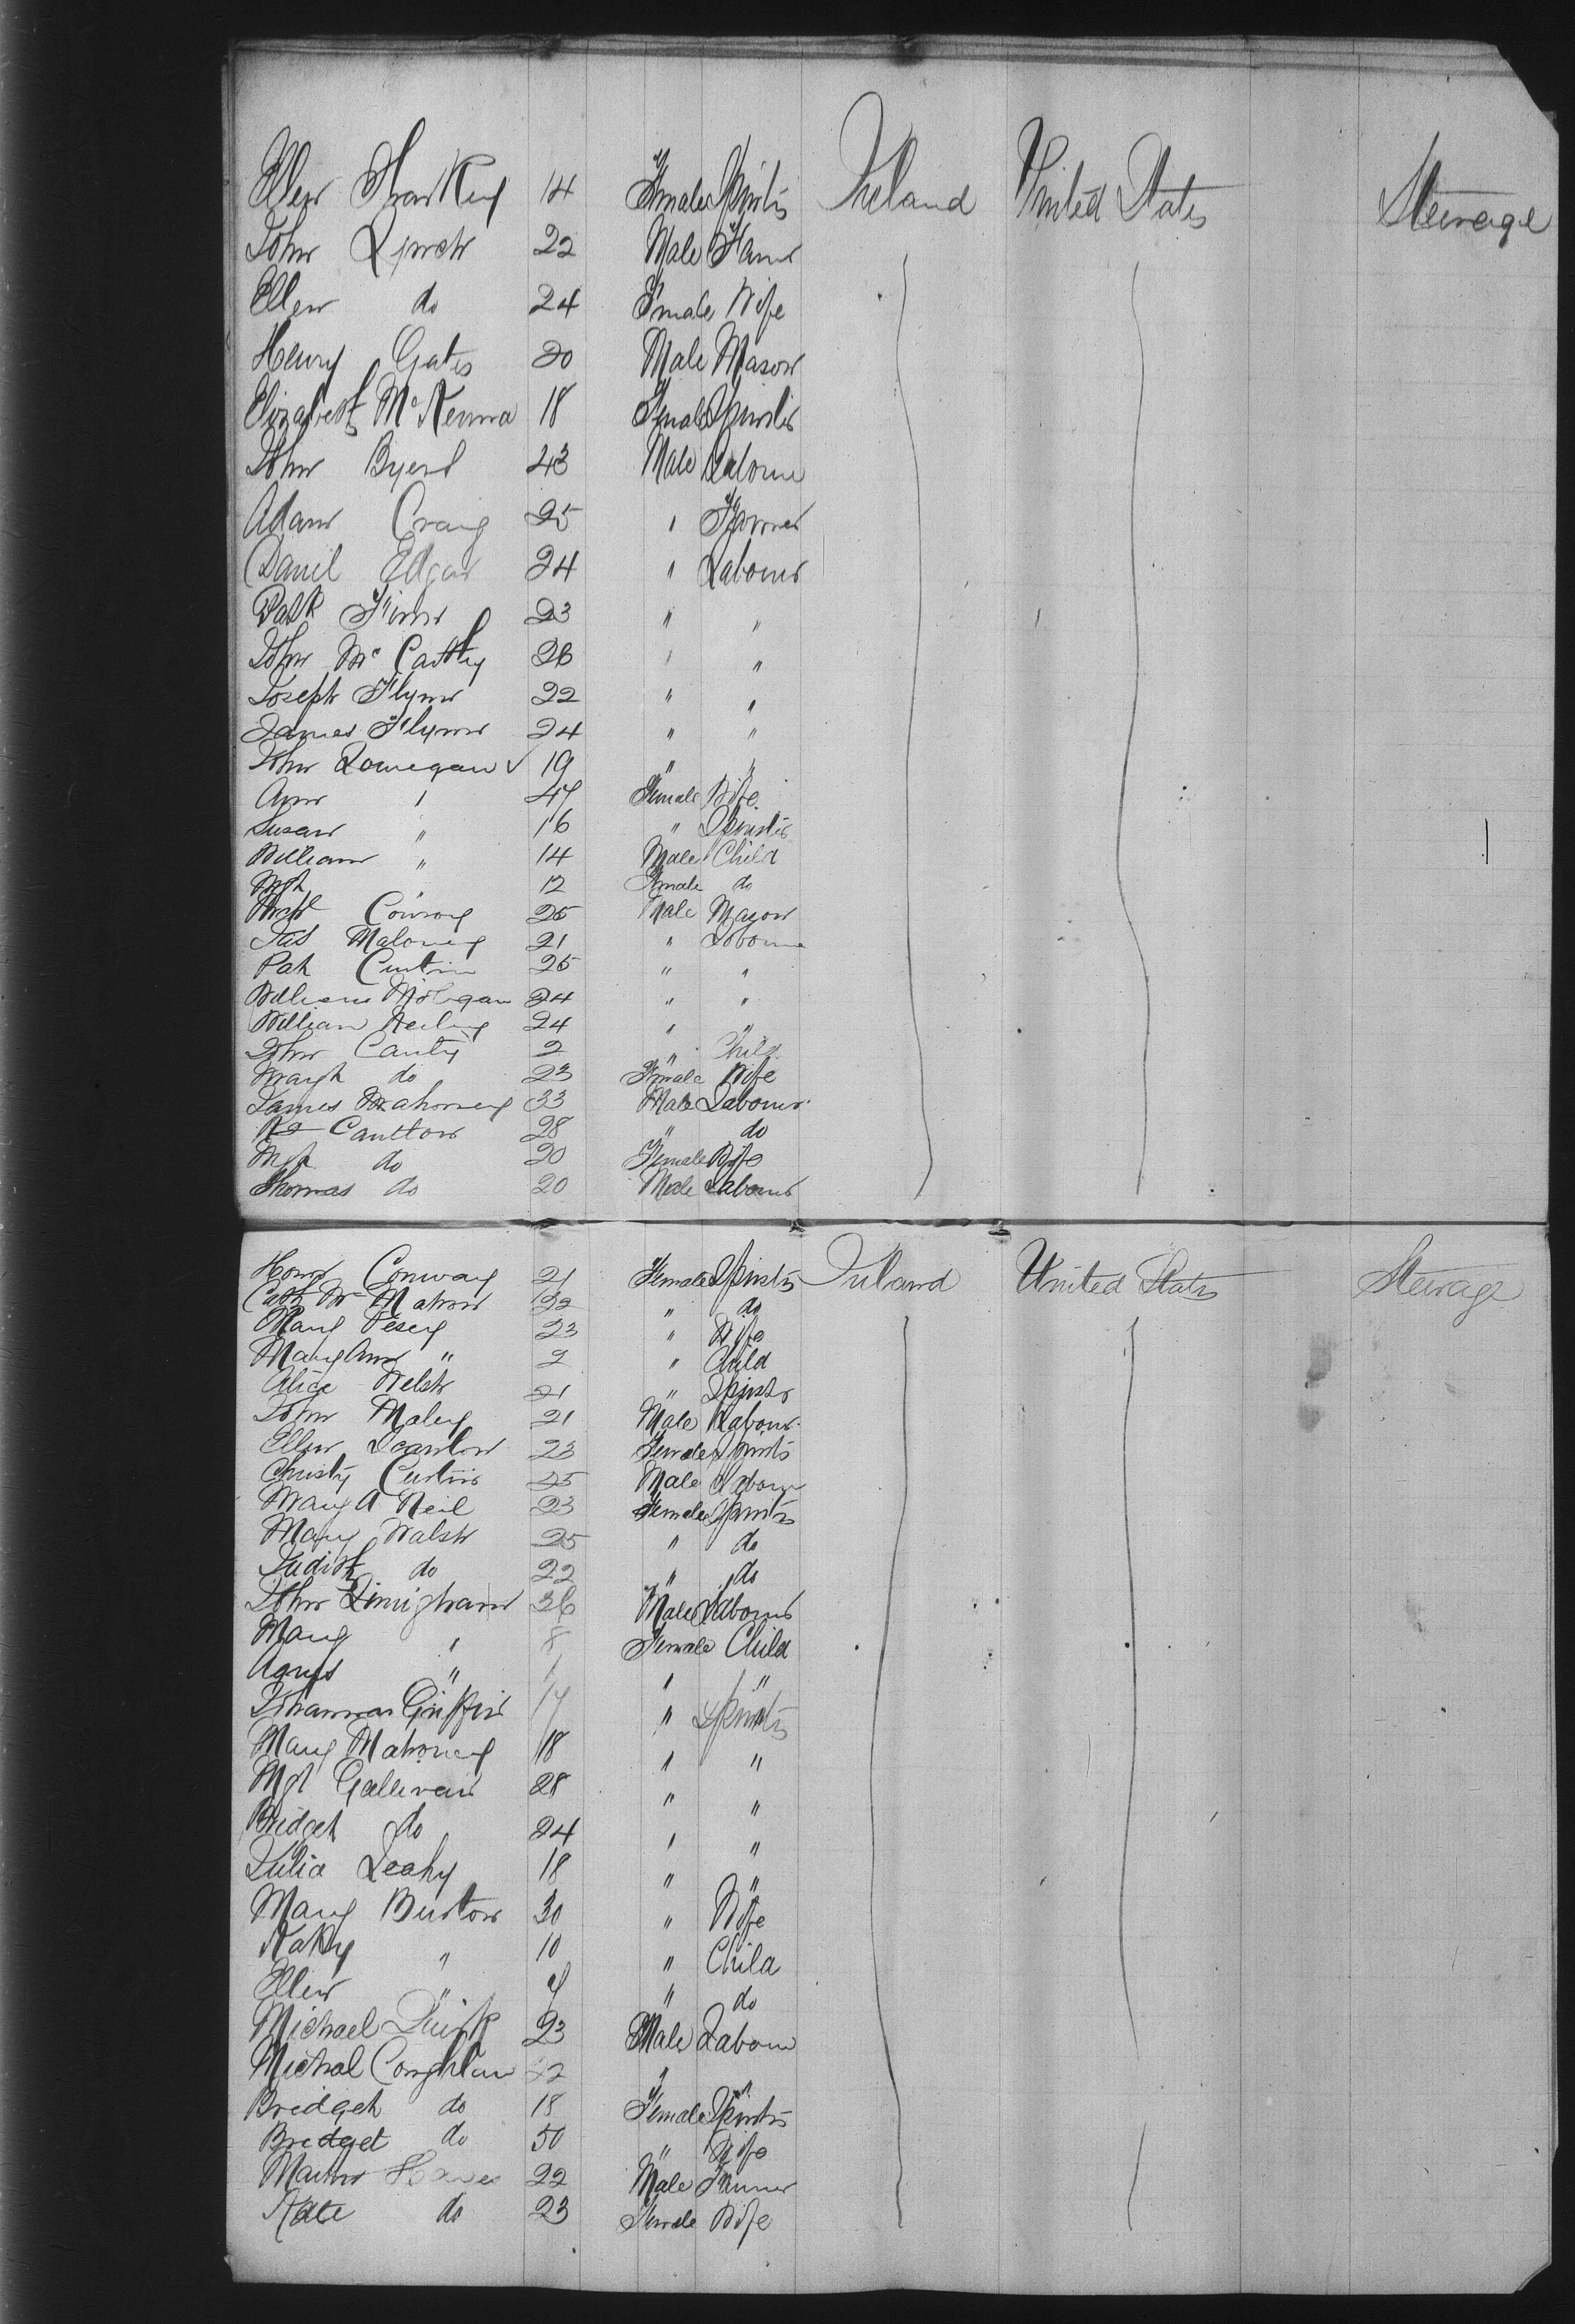 Ellen Sharkey 14 Female Spinster Ireland United States Steerage
John Lynch 22 Male Farmer
Ellen do 24 Female Wife
Henry Gates 20 Male Mason
Elizabeth McKenna 18 Female Spinster
John Byers 43 Male Labourer
Adam Craig 25 " Farmer
Daniel Edgar 24 " Labourer
Patk Finn 23 " "
John McCarthy 26 " "
Joseph Flynn 22 " "
James Flynn 24 " "
John Lonegan ✓ 19 " "
Ann " 47 Female Wife
Susan " 16 " Spinster
William " 14 Male Child
Mgt " 12 Female do
Conroy 25 Male Mason
Jas Maloney 21 " Labourer
Pat Curtin 25 " "
William 24 " "
William 24 " "
John Canty 2 " Child
Margt do 23 Female Wife
James Mahoney 33 Male Labourer
Cantlon 28 " do
Mgt do 20 Female Wife
Thomas do 20 Male Labourer
Honor Conway 21 Female Spinster Ireland United States Steerage
Cath McMahon 22 " do
Mary 23 " Wife
Mary Ann " 2 " Child
Alice Welsh 21 " Spinster
John Maley 21 Male Labour
Ellen Scanlon 23 Female Spinster
Christy Curtin 25 Male Labour
Mary A Neil 23 Female Spinster
Mary Walsh 25 " do
Judith do 22 " do
John 36 Male Labourer
Mary " 8 Female Child
Agnes " 1 " "
Johannah Griffin 17 " Spinster
Mary Mahoney 18 " "
Mgt Gallivan 28 " "
Bridget do 24 " "
Julia Leahy 18 " "
Mary Burton 30 " Wife
Kathy " 10 " Child
Ellen " 7 " do
Michael Quirk 23 Male Labour
Michal Coughlan 22 " "
Bridget do 18 Female Spinster
Bridget do 50 " Wife
Martin Hayes 22 Male Farmer
Kate do 23 Female Wife